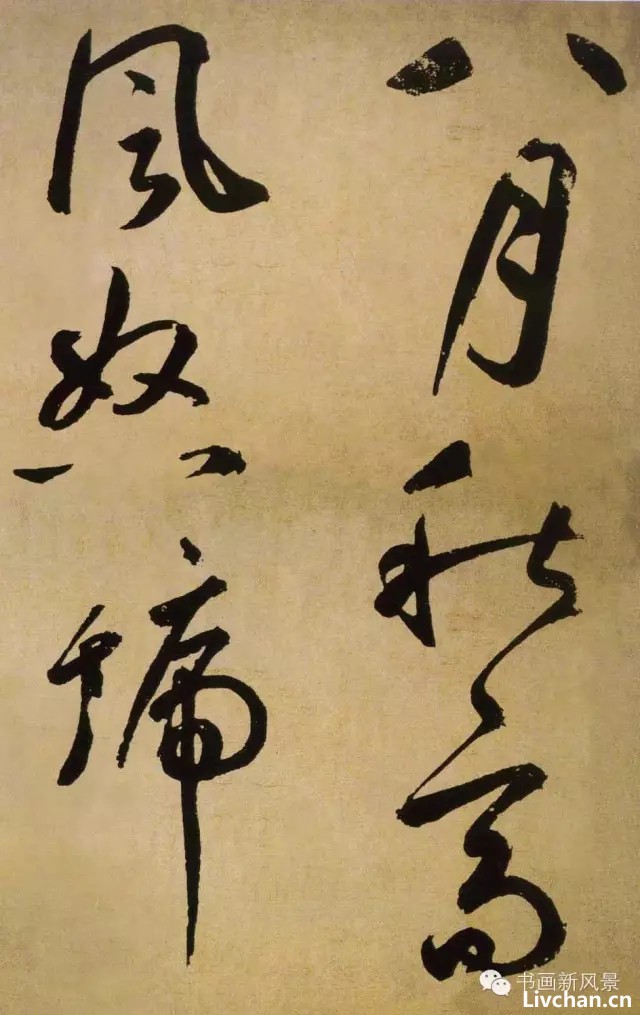 八月秋高
風怒號
书画新风景
Livchan.cn